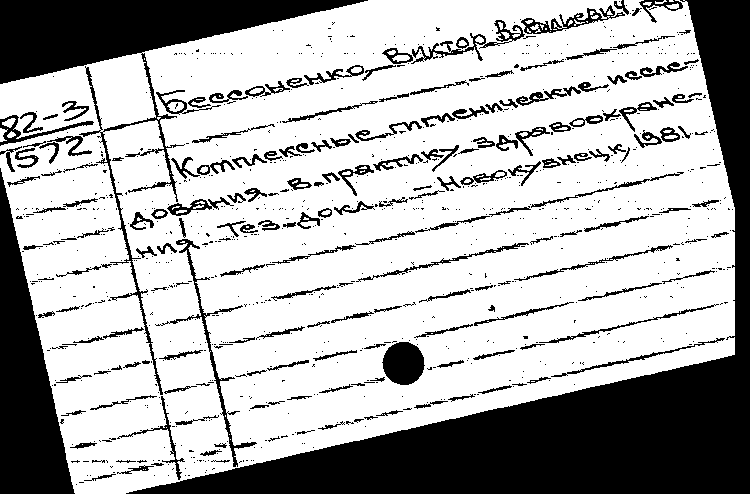 Бессоненко, Виктор Васильевич, ред
82-3
1572
Комплексные гигиенические иссле-
дования в практику здравоохране-
ния. Тез. докл. - Новокузнецк, 1981